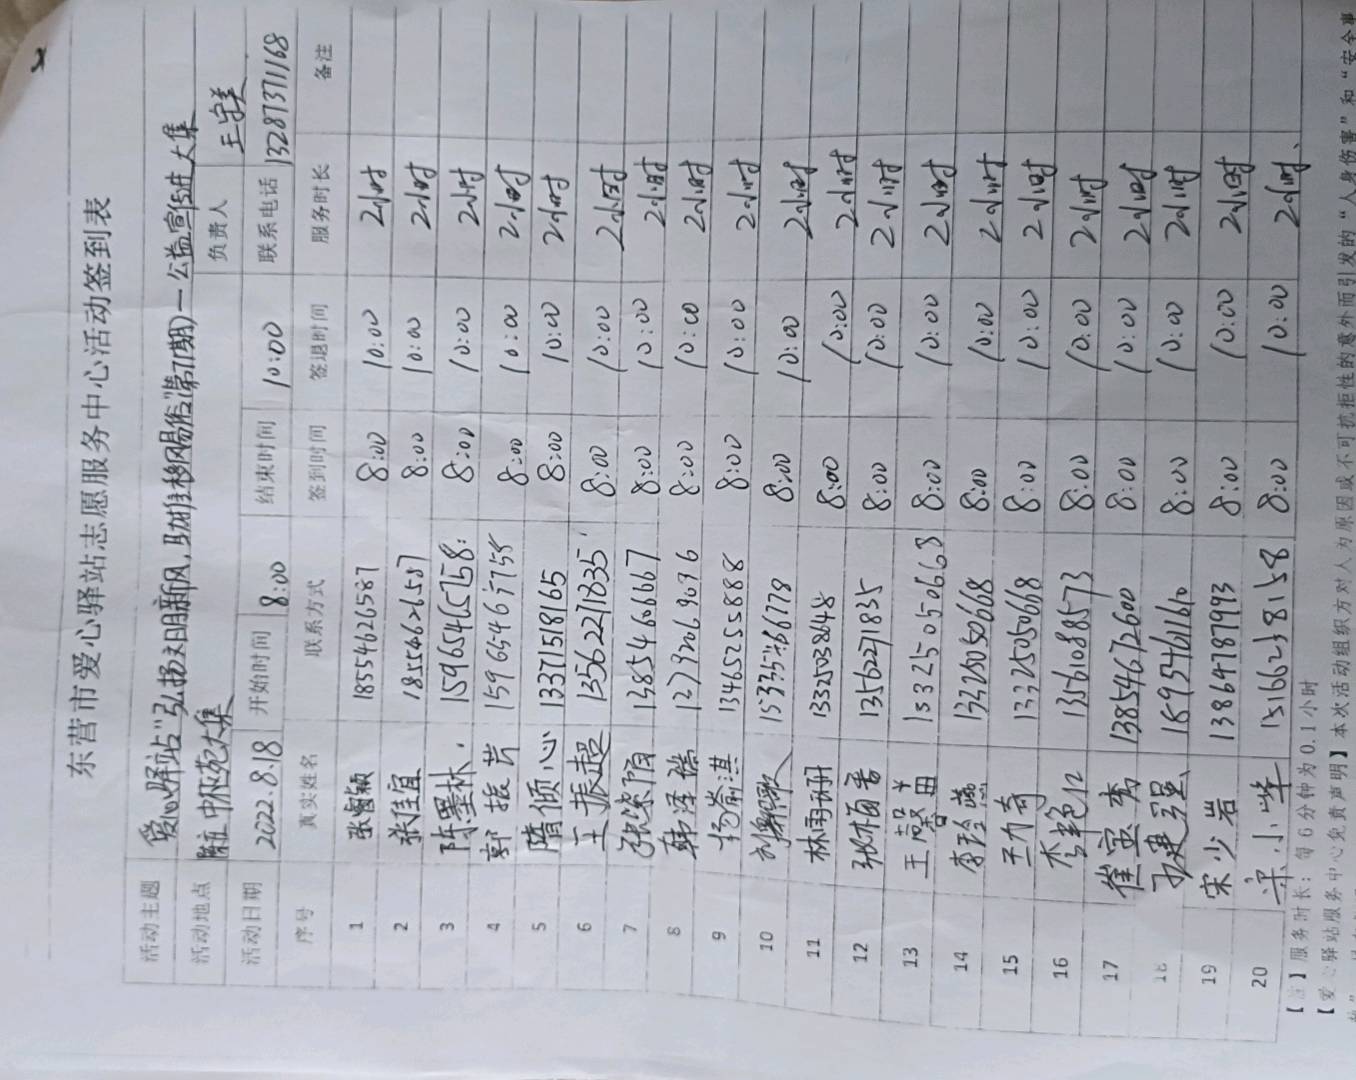 东营市爱心驿站志愿服务中心活动签到表
活动主题 爱心驿站"弘扬文明新风,助推移风易俗"(第71期)—公益宣传进大集
活动地点 大集 负责人 王学美
活动日期 2022.8.18 开始时间 8:00 结束时间 10:00 联系电话 13287371168
序号 真实姓名 联系方式 签到时间 签退时间 服务时长 备注
1 张睿颖 18554626587 8:00 10:00 2小时
2 张佳宜 18554626587 8:00 10:00 2小时
3 陈墨林 15965465758 8:00 10:00 2小时
4 郭振芹 15965465758 8:00 10:00 2小时
5 隋倾心 13371518165 8:00 10:00 2小时
6 王振超 13562271835 8:00 10:00 2小时
7 8:00 10:00 2小时
8 8:00 10:00 2小时
9 杨渝淇 13465255888 8:00 10:00 2小时
10 8:00 10:00 2小时
11 林雨珊 8:00 10:00 2小时
12 张梅香 13562271835 8:00 10:00 2小时
13 8:00 10:00 2小时
14 13325050668 8:00 10:00 2小时
15 王力奇 13325050668 8:00 10:00 2小时
16 李艳红 13561088573 8:00 10:00 2小时
17 崔寅秀 13854672600 8:00 10:00 2小时
18 8:00 10:00 2小时
19 宋少岩 13864787993 8:00 10:00 2小时
20 梁小华 15166238158 8:00 10:00 2小时
【注】服务时长:每6分钟为0.1小时
【爱心驿站服务中心免责声明】本次活动组织方对人为原因或不可抗拒性的意外而引发的"人身伤害"和"安全事